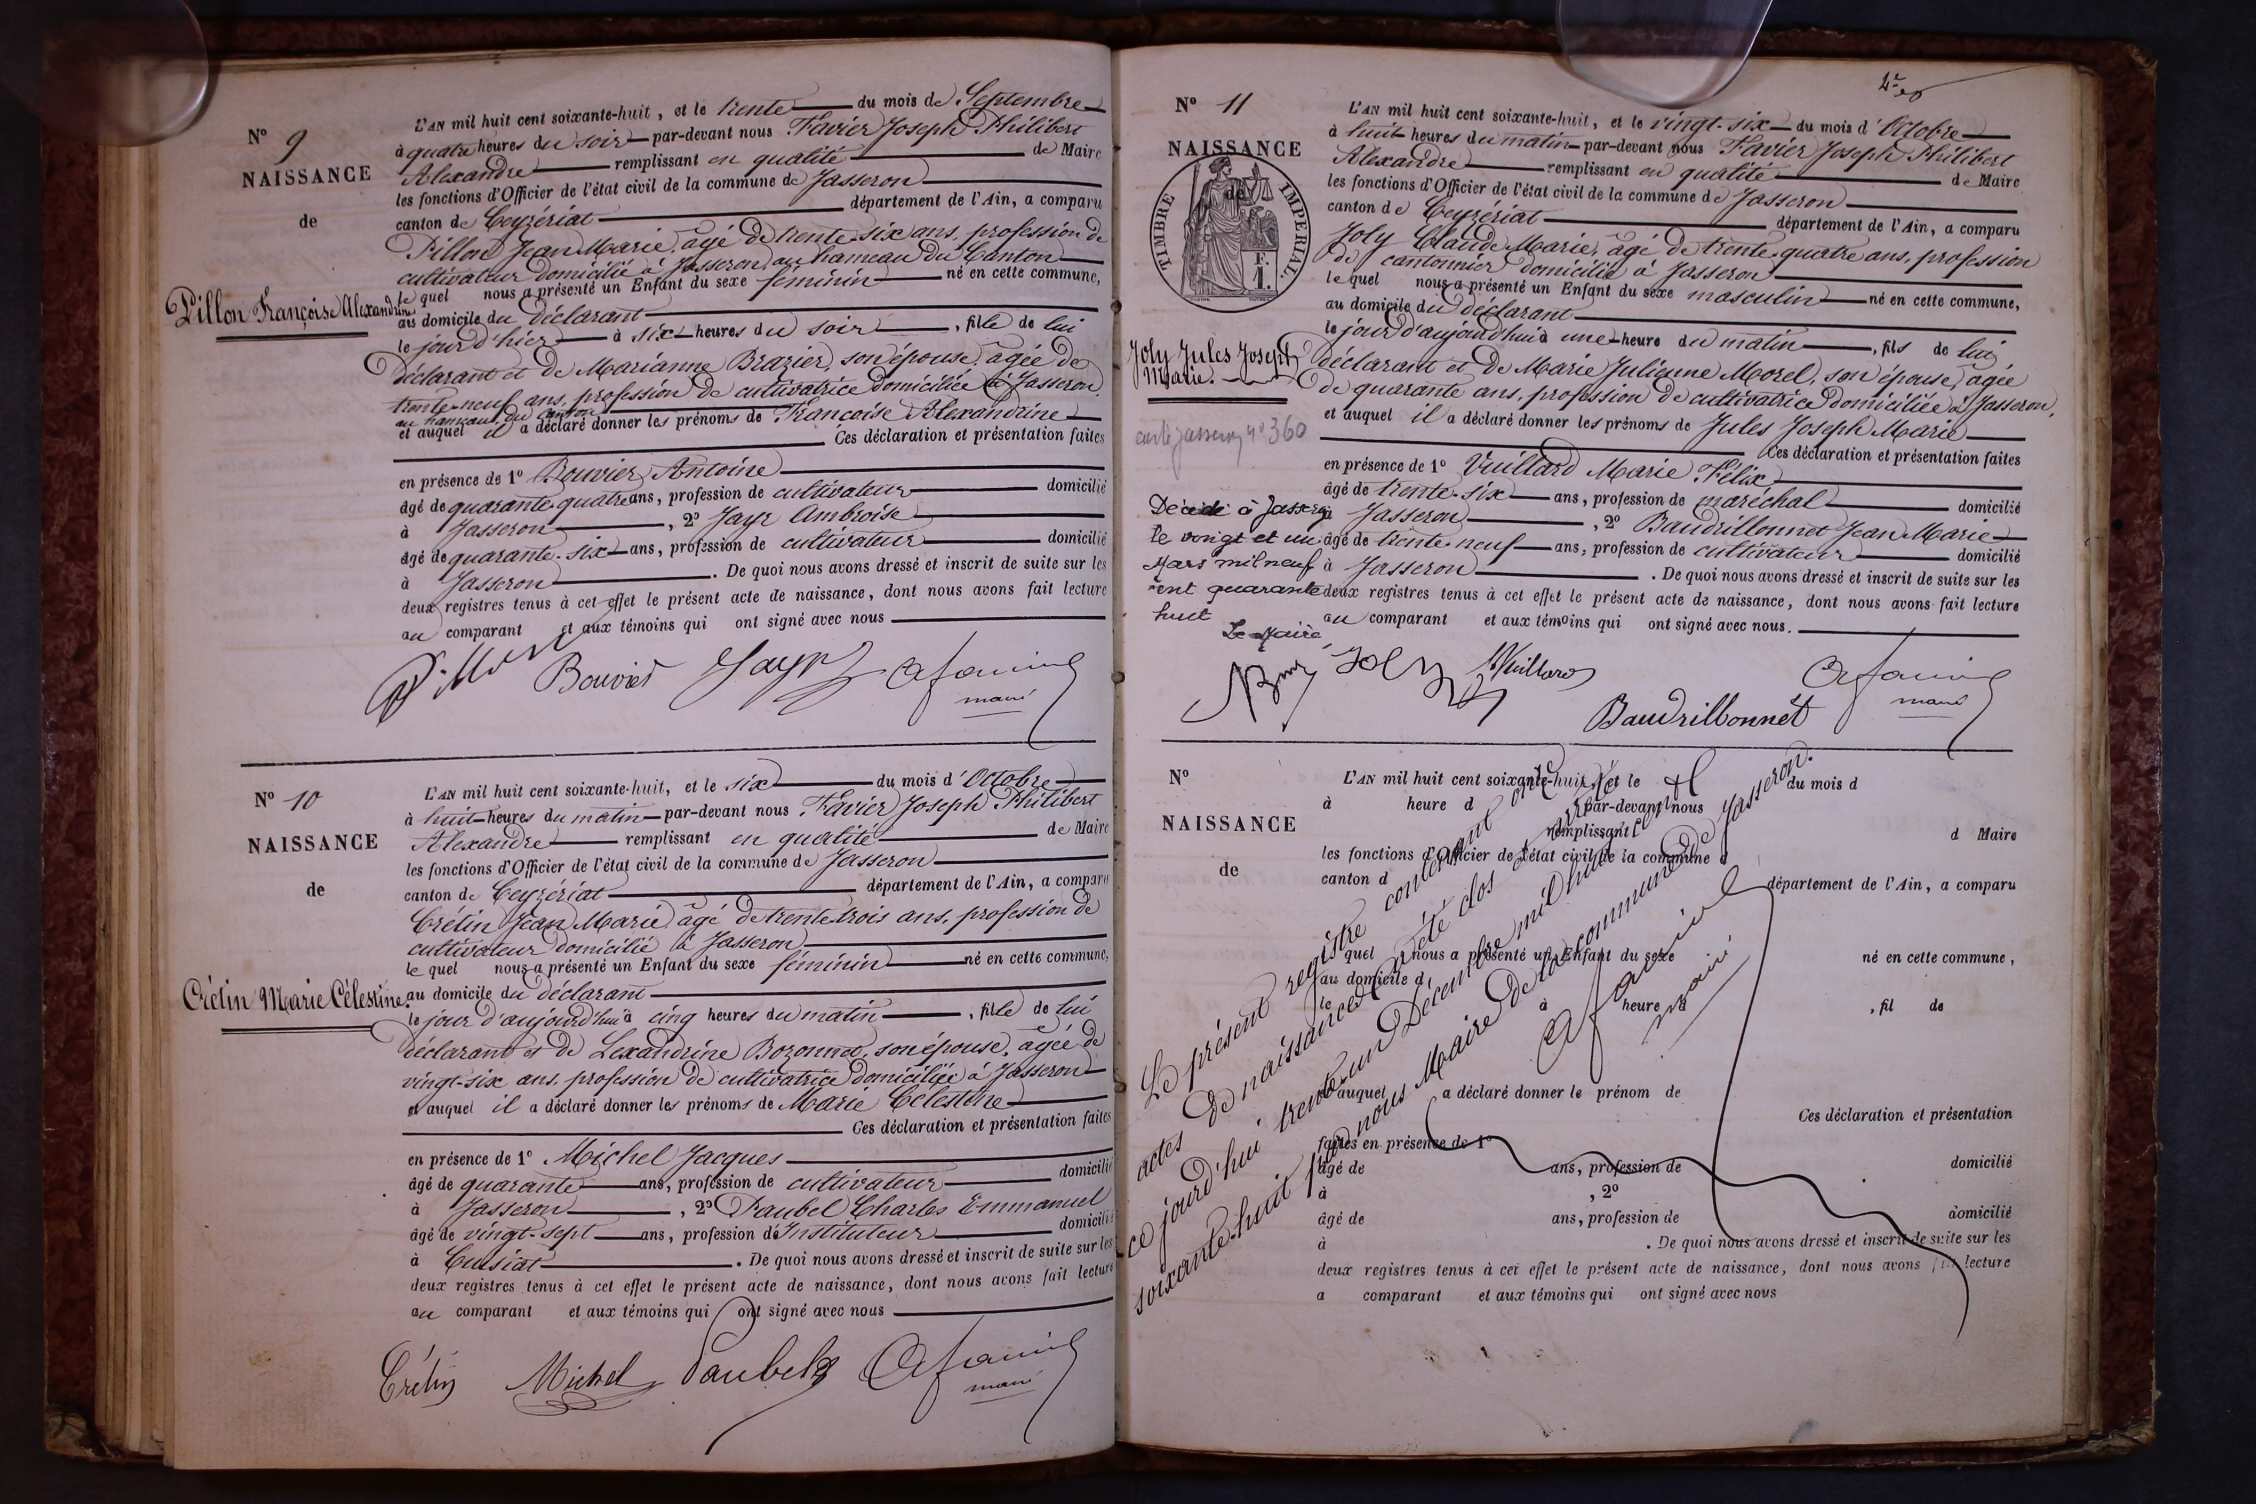 N° 9
NAISSANCE
de
Pillon Françoise Alexandrine
L'AN mil huit cent soixante-huit, et le trente du mois de Septembre
à quatre heures du soir par-devant nous Favier Joseph Philibert
Alexandre remplissant en qualité de Maire
les fonctions d'Officier de l'état civil de la commune de Jasseron
canton de Ceyzériat département de l'Ain, a comparu
Pillon Jean Marie, âgé de trente-six ans, profession de
cultivateur domicilié à Jasseron, au hameau du Canton
le quel nous a présenté un Enfant du sexe féminin né en cette commune,
au domicile du déclarant
le jour d'hier à six heures du soir, fille de lui
déclarant et de Marianne Brazier, son épouse, âgée de
trente-neuf ans, profession de cultivatrice domiciliée à Jasseron,
au hameau du Canton
et auquel il a déclaré donner les prénoms de Françoise Alexandrine
Ces déclaration et présentation faites
en présence de 1° Bouvier Antoine
âgé de quarante-quatre ans, profession de cultivateur domicilié
à Jasseron, 2° Jayr Ambroise
âgé de quarante-six ans, profession de cultivateur domicilié
à Jasseron. De quoi nous avons dressé et inscrit de suite sur les
deux registres tenus à cet effet le présent acte de naissance, dont nous avons fait lecture
au comparant et aux témoins qui ont signé avec nous
Bouvier Jayr AFavier
maire
N° 10
NAISSANCE
de
Crétin Marie Célestine.
L'AN mil huit cent soixante-huit, et le six du mois d'Octobre
à huit heures du matin par-devant nous Favier Joseph Philibert
Alexandre remplissant en qualité de Maire
les fonctions d'Officier de l'état civil de la commune de Jasseron
canton de Ceyzériat département de l'Ain, a comparu
Crétin Jean Marie, âgé de trente-trois ans, profession de
cultivateur domicilié à Jasseron
le quel nous a présenté un Enfant du sexe féminin né en cette commune,
au domicile du déclarant
le jour d'aujourd'hui à cinq heures du matin, fille de lui
déclarant et de Lexandrine Bozonnet, son épouse, âgée de
vingt-six ans, profession de cultivatrice domiciliée à Jasseron
et auquel il a déclaré donner les prénoms de Marie Célestine
Ces déclaration et présentation faites
en présence de 1° Michel Jacques
âgé de quarante ans, profession de cultivateur domicilié
à Jasseron, 2° Paubel Charles Emmanuel
âgé de vingt-sept ans, profession de Instituteur domicilié
à Cuisiat. De quoi nous avons dressé et inscrit de suite sur les
deux registres tenus à cet effet le présent acte de naissance, dont nous avons fait lecture
au comparant et aux témoins qui ont signé avec nous
Crétin Michel Paubel AFavier
maire
N° 11
NAISSANCE
de
TIMBRE IMPERIAL.
F.
1.
Joly Jules Joseph
Marie.
carte Jasseron n° 360
Décédé à Jasseron
le vingt et un
Mars mil neuf
cent quarante
huit
Le Maire,
L'AN mil huit cent soixante-huit, et le vingt-six du mois d'Octobre
à huit heures du matin par-devant nous Favier Joseph Philibert
Alexandre remplissant en qualité de Maire
les fonctions d'Officier de l'état civil de la commune de Jasseron
canton de Ceyzériat département de l'Ain, a comparu
Joly Claude Marie, âgé de trente-quatre ans, profession
de cantonnier domicilié à Jasseron
le quel nous a présenté un Enfant du sexe masculin né en cette commune,
au domicile du déclarant
le jour d'aujourd'hui à une heure du matin, fils de lui
déclarant et de Marie Julienne Morel, son épouse, âgée
de quarante ans, profession de cultivatrice domiciliée à Jasseron,
et auquel il a déclaré donner les prénoms de Jules Joseph Marie
Ces déclaration et présentation faites
en présence de 1° Vuillard Marie Félix
âgé de trente-six ans, profession de maréchal domicilié
à Jasseron, 2° Baudrillonnet Jean Marie
âgé de trente-neuf ans, profession de cultivateur domicilié
à Jasseron. De quoi nous avons dressé et inscrit de suite sur les
deux registres tenus à cet effet le présent acte de naissance, dont nous avons fait lecture
au comparant et aux témoins qui ont signé avec nous.
Joly Vuillard Baudrillonnet AFavier
maire
N°
NAISSANCE
de
L'AN mil huit cent soixante-huit, et le du mois d
à heure d par-devant nous
remplissant d Maire
les fonctions d'Officier de l'état civil de la commune d
canton d département de l'Ain, a comparu
quel nous a présenté un Enfant du sexe né en cette commune,
au domicile d
le à heure d, fil de
auquel a déclaré donner le prénom de
Ces déclaration et présentation
faites en présence de 1°
âgé de ans, profession de domicilié
à, 2°
âgé de ans, profession de domicilié
à. De quoi nous avons dressé et inscrit de suite sur les
deux registres tenus à cet effet le présent acte de naissance, dont nous avons fait lecture
a comparant et aux témoins qui ont signé avec nous
Le présent registre contenant onze
actes de naissances a été clos et arrêté
ce jourd'hui trente-un Décembre mil huit cent
soixante-huit par nous Maire de la commune de Jasseron.
AFavier
maire